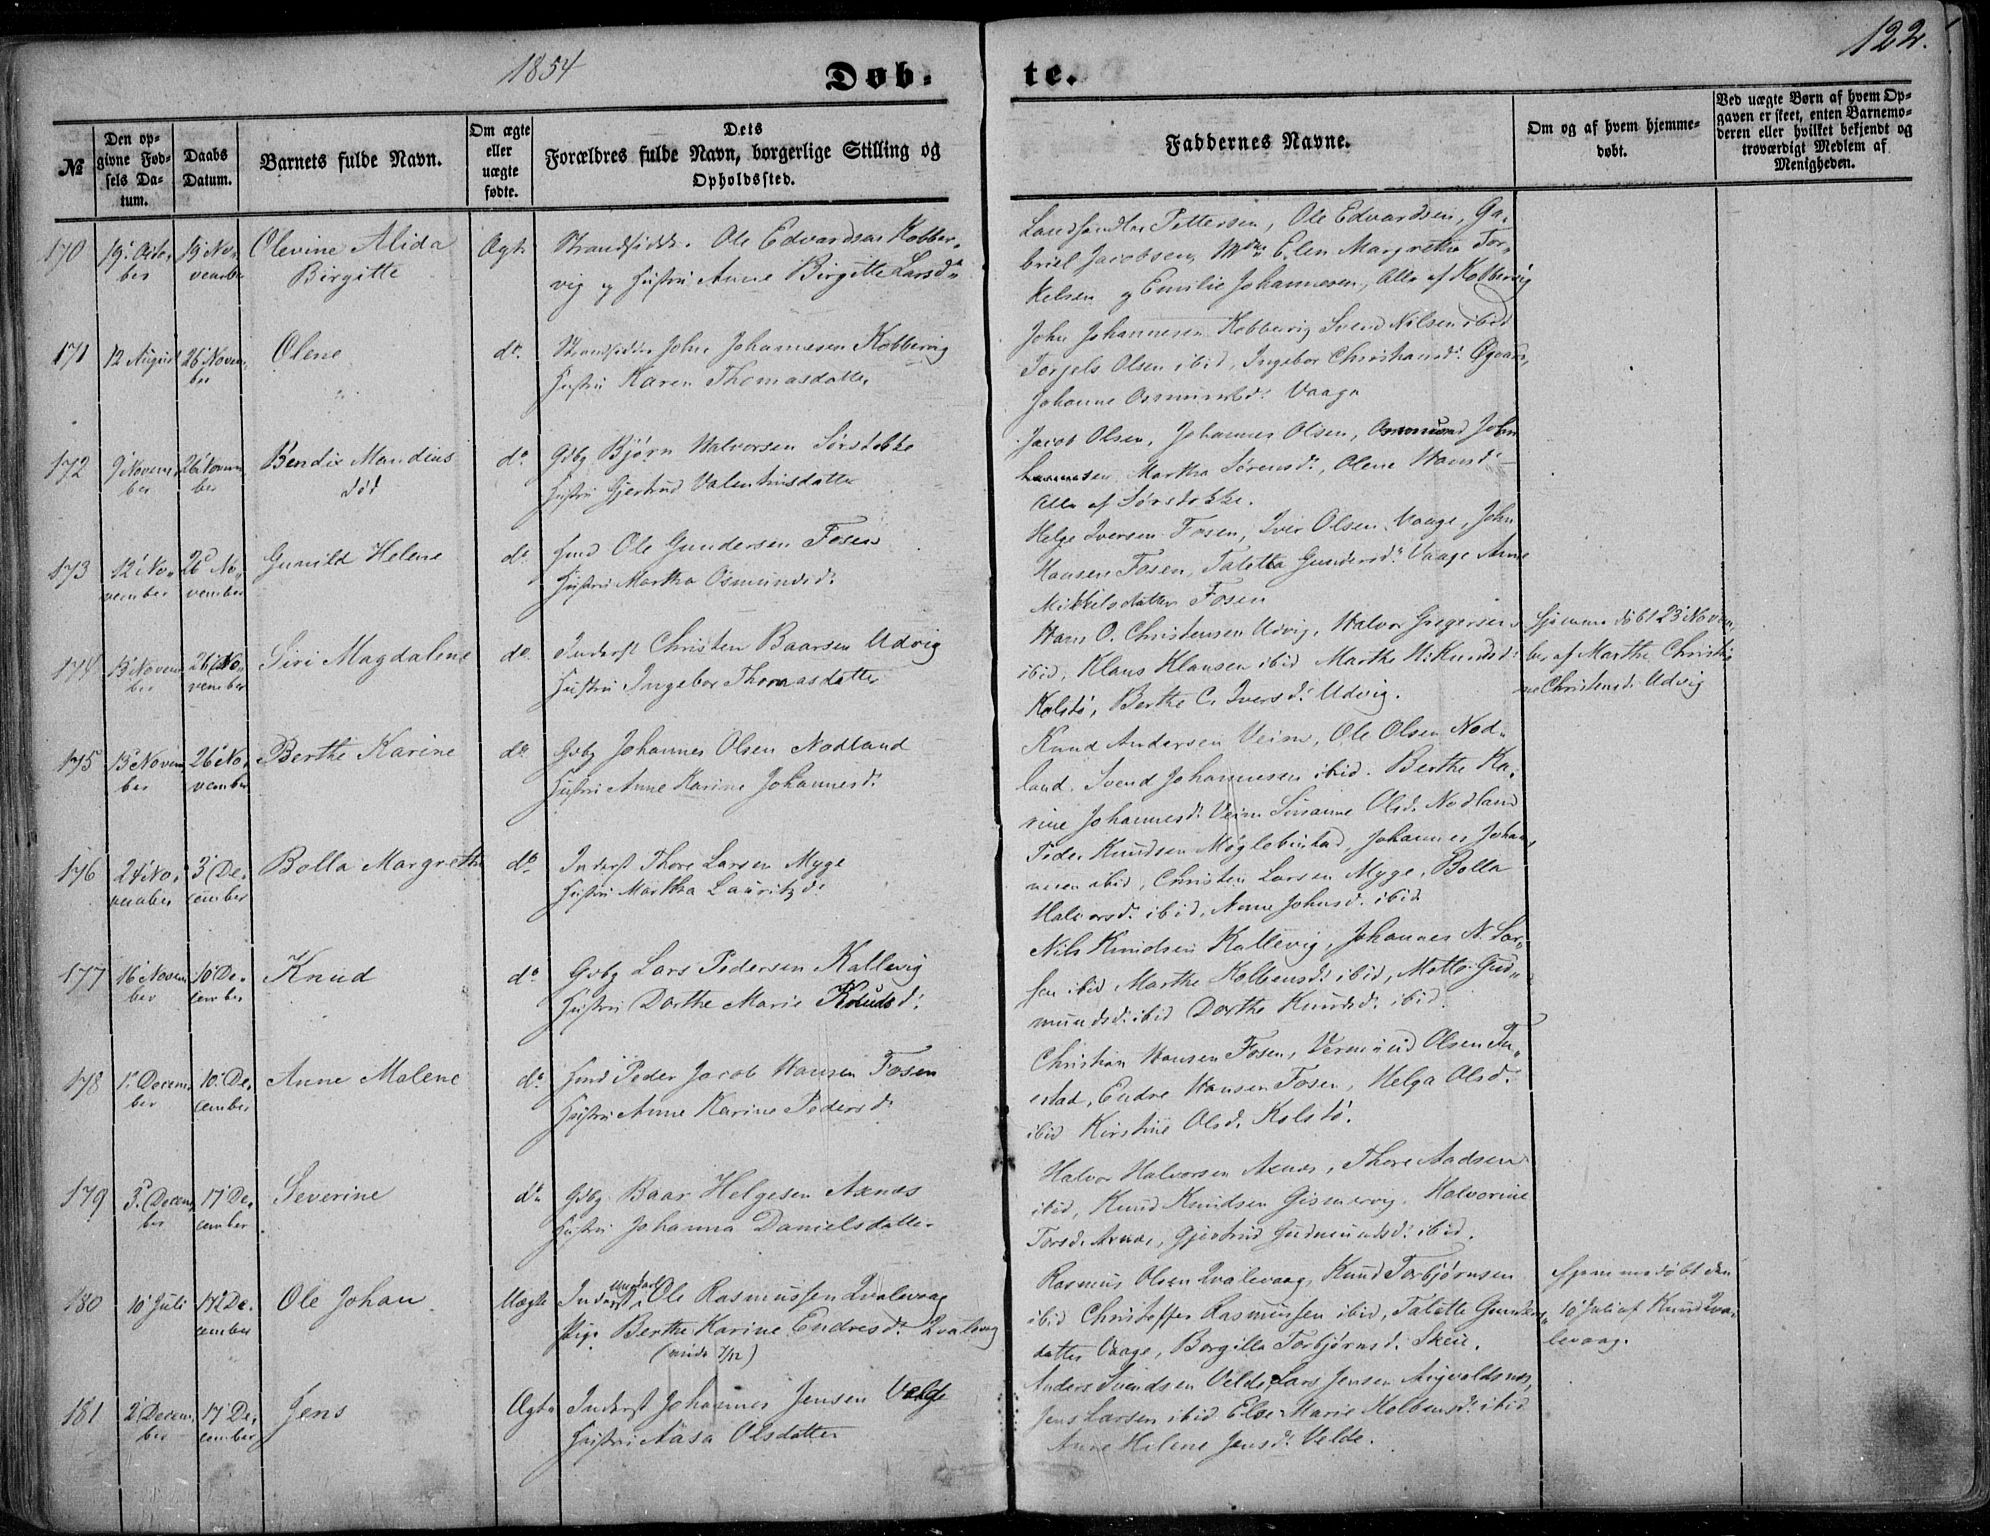 1854
Døb-
te.
122.
№
Den opgivne Fødsels Datum.
Daabs Datum.
Barnets fulde Navn.
Om ægte eller uægte fødte.
Dets Forældres fulde Navn, borgerlige Stilling og Opholdssted.
Faddernes Navne.
Om og af hvem hjemmedøbt.
Ved uægte Børn af hvem Opgaven er skeet, enten Barnemoderen eller hvilket bekjendt og troværdigt Medlem af Menigheden.
170 19' Octo- 19 No- Olevine Alida Ægte Strandsidder Ole Edvardsen Kobber-
ber vember Birgitte vig og Hustru Anne Birgitte Larsd.
Pettersen, Ole Edvardsen, Ga-
briel Jacobsen, Elen Margrethe Tor-
kelsen og Emilie Johannesen, Alle af Kobbervig
171 12 August 26 Novem- Olene d°. Strandsidder John Johannesen Kobbervig
ber Hustru Karen Thomasdatter
John Johannesen Kobbervig Svend Nilsen ibid
Torjels Olsen ibid, Ingebor Christiansd.
Johanne Osmundsd. Vaage
172 9 Novem- 26 Novem- Bendix Mandius d° Gdbg Bjørn Halvorsen Sørstokke
ber ber død Hustru Gjertrud Valentinsdatter
Jacob Olsen, Johannes Olsen, Osmund Johan-
nesen, Martha Sørensd., Olene Hansd.
Alle af Sørstokke.
173 12 No- 26 No- Gunild Helene d° Hmd Ole Gundersen Fosen
vember vember Hustru Martha Osmundsd.
Helge Iversen Fosen, Iver Olsen Vaage, John
Hansen Fosen, Talette Gundersd. Vaage Anne
Mikkelsdatter Fosen
174 13 Novem- 26 No- Siri Magdalene d° Inderst Christen Baarsen Udvig
ber vember Hustru Ingebor Thomasdatter
Hans O. Christensen Udvig, Halvor Gregersen
ibid, Klaus Klausen ibid Marthe Knudsd.
Kolstø, Berthe C. Iversd. Udvig.
Hjemmedøbt 23 Novem-
ber af Marthe Christi-
ne Christensd. Udvig
175 15 Novem- 26 No- Berthe Karine d° Gdbg Johannes Olsen Nodland
ber vember Hustru Anne Karine Johannesd.
Knud Andersen Veim, Ole Olsen Nod-
land, Svend Johannesen ibid. Berthe Ka-
rine Johannesd. Veim Susanne Olsd. Nodland
176 24 No- 3 De- Bolla Margrethe d° Inderst Thore Larsen Myge
vember cember Hustru Martha Lauritzd.
Peder Knudsen Møglebustad, Johannes Johan-
nesen ibid, Christen Larsen Myge, Bolla
Halvorsd. ibid, Anne Johnsd. ibid
177 16 Novem- 10 De- Knud d° Gdbg Lars Pedersen Kallevig
ber cember Hustru Dorthe Marie Knudsd.
Nils Knudsen Kallevig, Johannes N. Lar-
sen ibid Marthe Kolbensd. ibid, Gud-
mundsd. ibid Dorthe Knudsd. ibid.
178 1' Decem- 10 De- Anne Malene d° Hmd Peder Jacob Hansen Fosen
ber cember Hustru Anne Karine Pedersd.
Christian Hansen Fosen, Vermund Olsen Tu-
estad, Endre Hansen Fosen, Helga Olsd.
ibid Kirstine Olsd. Kolstø.
179 3 Decem- 17 De- Severine d° Gdbg Baar Helgesen Axnes
ber cember Hustru Johanna Danielsdatter
Halvor Halvorsen Axnes, Thore Aadsen
ibid, Knud Knudsen Gismervig. Halvorine
Torsd. Axnes, Gjertrud Gudmundsd. ibid.
180 10 Juli 17 De- Ole Johan Uægte Ungkarl Ole Rasmussen Qvalevaag
cember Pige Berthe Karine Endresd. Qvalevaag
Rasmus Olsen Qvalevaag, Knud Torbjørnsen
ibid Christoffer Rasmussen ibid, Talette Gunders-
datter Vaage, Borgilla Torbjørnsd. Skeie.
Hjemmedøbt den
10 Juli af Knud Qva-
levaag.
181 2 Decem- 17 De- Jens Ægte Inderst Johannes Jensen Velde
ber cember Hustru Aasa Olsdatter
Anders Svendsen Velde, Lars Jensen Augvaldsnes,
Jens Larsen ibid Else Marie Kolbensd. ibid
Anne Helene Jensd. Velde.